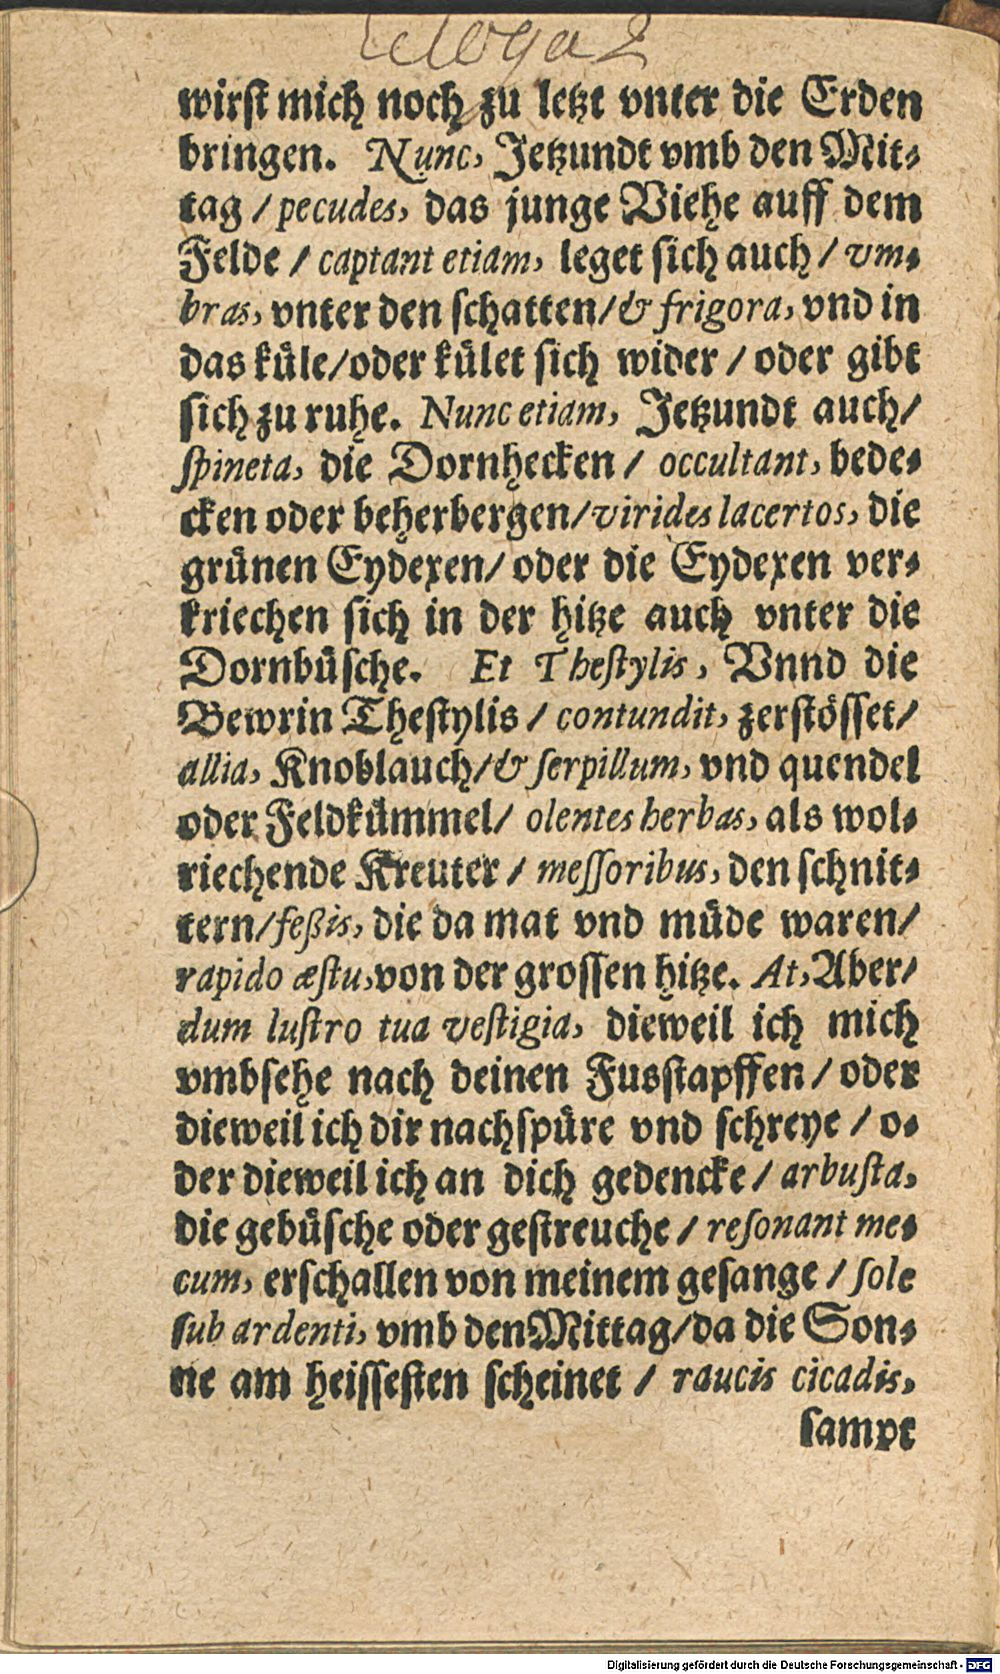 Ecloga 2
wirſt mich noch zu letzt vnter die Erden
bringen. Nunc, Jetzundt vmb den Mit⸗
tag / pecudes, das junge Viehe auff dem
Felde / captant etiam, leget ſich auch / vm⸗
bras, vnter den ſchatten/ & frigora, vnd in
das kuͤle/oder kuͤlet ſich wider / oder gibt
ſich zu ruhe. Nunc etiam, Jetzundt auch/
ſpineta, die Dornhecken / occultant, bede⸗
cken oder beherbergen/virides lacertos, die
gruͤnen Eydexen/ oder die Eydexen ver⸗
kriechen ſich in der hitze auch vnter die
Dornbuͤſche. Et Theſtylis, Vnnd die
Bewrin Theſtylis / contundit, zerſtoͤſſet/
allia, Knoblauch/& ſerpillum, vnd quendel
oder Feldkuͤmmel/ olentes herbas, als wol⸗
riechende Kreuter / meſſoribus, den ſchnit⸗
tern/feßis, die da mat vnd muͤde waren/
rapido æſtu,von der groſſen hitze. At,Aber/
dum luſtro tua veſtigia, dieweil ich mich
vmbſehe nach deinen Fusſtapffen / oder
dieweil ich dir nachſpuͤre vnd ſchreye / o⸗
der dieweil ich an dich gedencke / arbuſta,
die gebuͤſche oder geſtreuche / reſonant me⸗
cum, erſchallen von meinem geſange / ſole
ſub ardenti, vmb den Mittag/da die Son⸗
ne am heiſſeſten ſcheinet / raucis cicadis,
ſampt
Digitalisierung gefördert durch die Deutsche Forschungsgemeinschaft - DFG